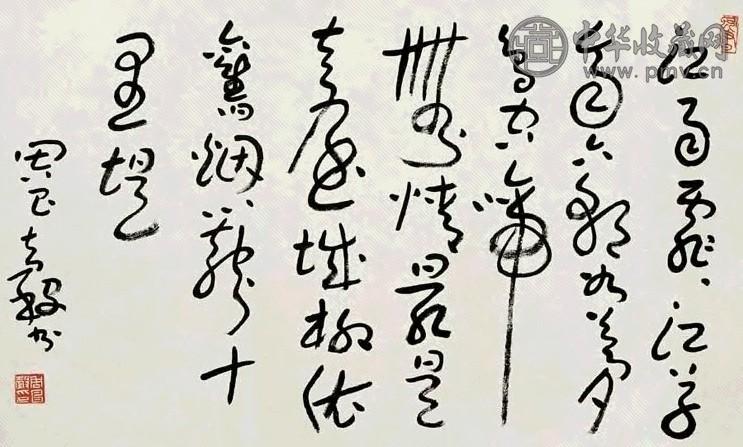 中华收藏网
www.pmv.cn
江雨霏〻江草
齊六朝如夢
鳥空啼
無情最是
臺城柳依
舊烟籠十
里堤
周昌穀書